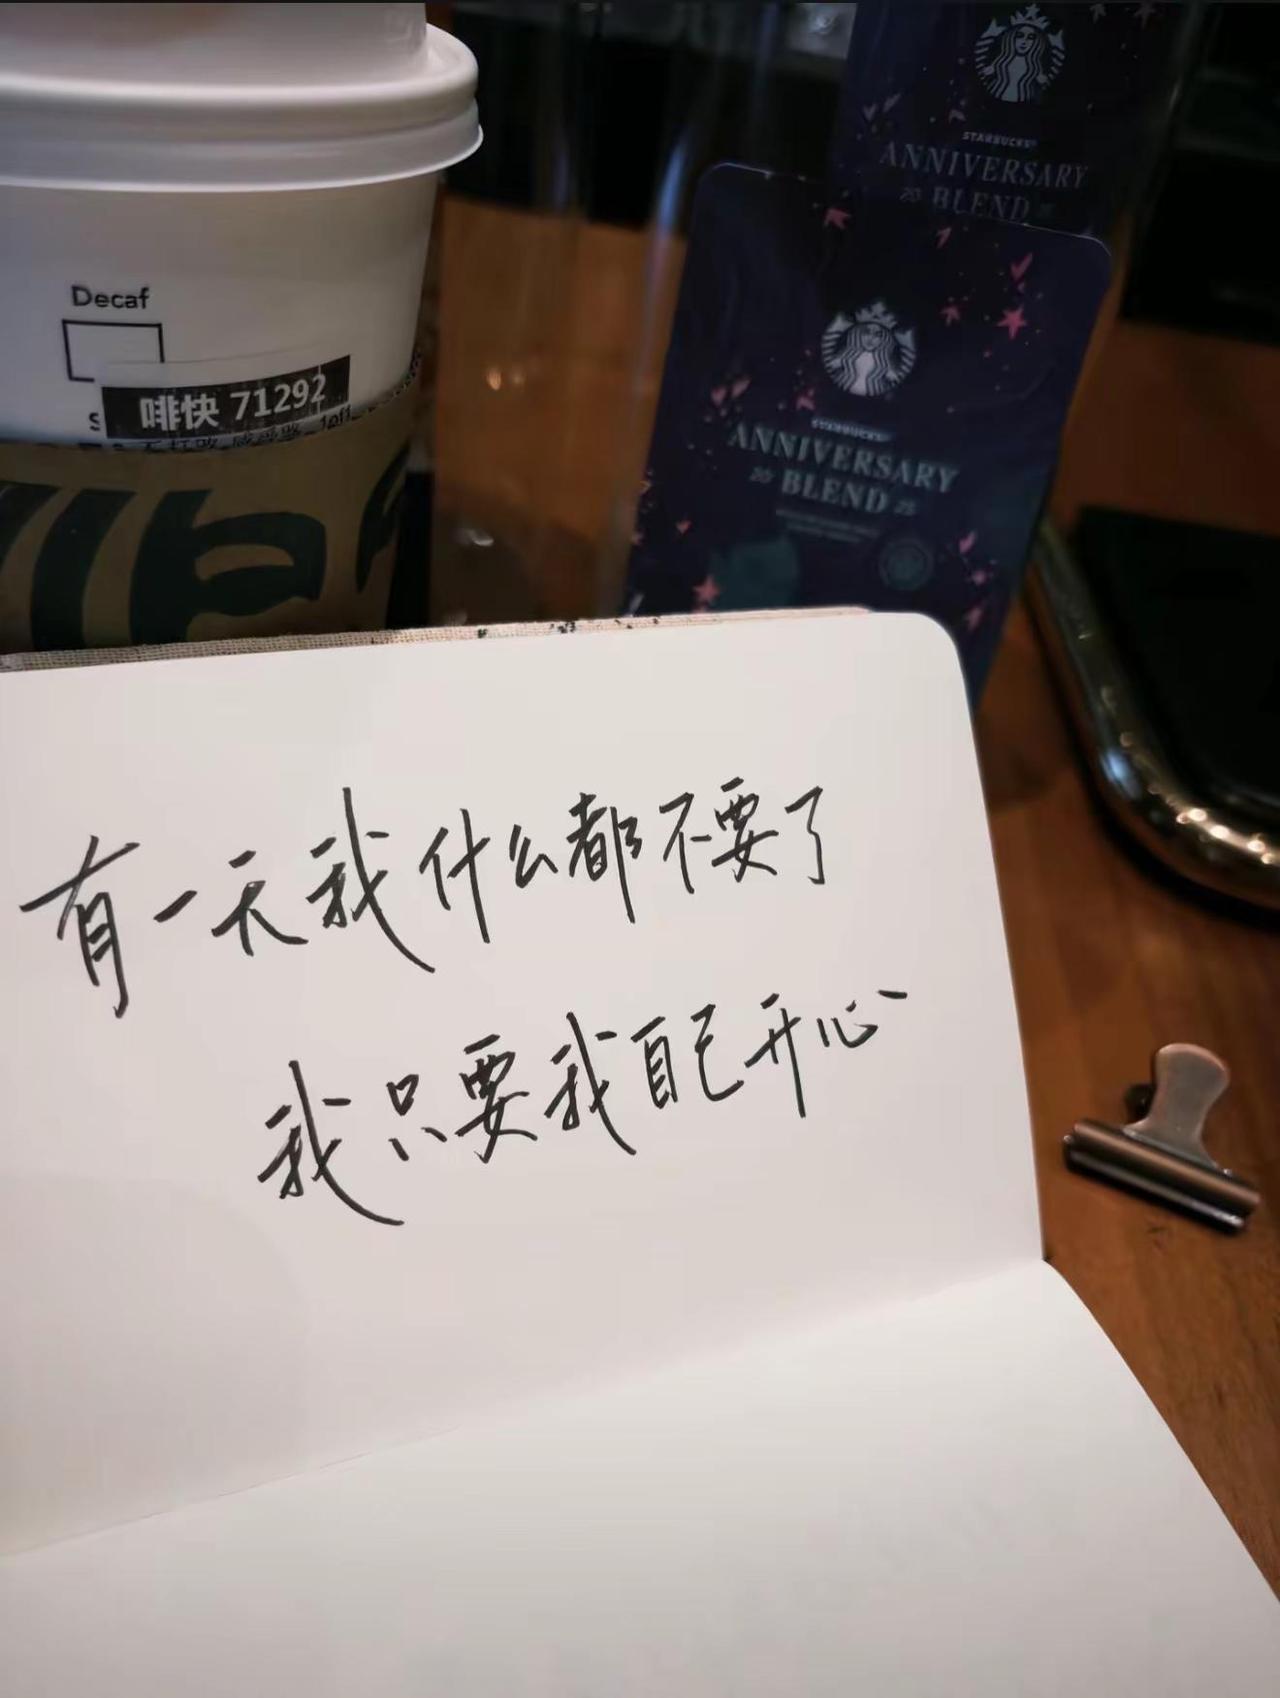 Decaf
啡快 71292
STARBUCKS
ANNIVERSARY
20 BLEND
STARBUCKS
ANNIVERSARY
20 BLEND 25
有一天我什么都不要了
我只要我自己开心